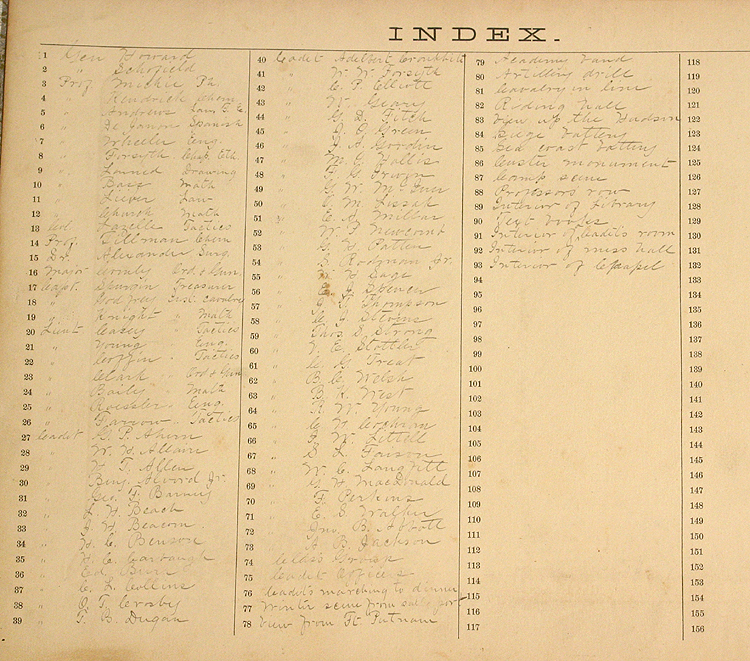 INDEX.
1 Gen Howard
2 " Schofield
3 Prof Michie Ph.
4 " Kendrick Chem.
5 " Andrews Law, &c.
6 " De Janon Spanish
7 " Wheeler Eng.
8 " Forsyth Chap. Eth.
9 " Larned Drawing
10 " Bass Math
11 " Lieber Law
12 " Church Math
13 Col Lazelle Tactics
14 Prof. Tillman Chem
15 Dr. Alexander Surg.
16 Major Ord & Gun.
17 Capt. Spurgin Treasurer
18 " Godfrey Inst. Cavalry
19 " Knight " Math
20 Lieut Casey " Tactics
21 " Young Eng.
22 " Coffin " Tactics
23 " Clark " Ord & Gun
24 " Bailey " Math
25 " Roessler " Eng.
26 " Farrow " Tactics
27 Cadet G. P. Ahern
28 " W. H. Allaire
29 " H. T. Allen
30 " Benj. Alvord Jr.
31 " Geo. T.
32 " Beach
33 " J. H. Beacom
34 " H. C. Benson
35 " H. C. Carbaugh
36 " Burr
37 " E. L. Collins
38 " Crosby
39 " T. B. Dugan
40 Cadet Adelbert Cronkhite
41 " W. W. Forsyth
42 " C. P. Elliott
43 " W. Geary
44 " G. D. Fitch
45 " J. O. Green
46 " J. A. Gordon
47 " M. C. Hollis
48 " F. G. Irwin
49 " G. W. McIver
50 " O. M. Lissak
51 " E. A. Millar
52 " W. P. Newcomb
53 " G. H. Patten
54 " S. Rodman Jr.
55 " W. H. Sage
56 " E. J. Spencer
57 " Thompson
58 " C. J. Stevens
59 " Thos. S. Strong
60 " V. E. Stottler
61 " C. G. Treat
62 " B. C. Welsh
63 " B. K. West
64 " R. W. Young
65 " C. H. Cochran
66 " I. W. Littell
67 " S. L. Faison
68 " W. C. Langfitt
69 " G. H. MacDonald
70 " F. Perkins
71 " E. S. Walker
72 " Jno. B. Abbott
73 " J. B. Jackson
74 Class Group
75 Cadet Officers
76 Cadets marching to dinner
77 Winter scene from sally port
78 View from Ft. Putnam
79 Academy band
80 Artillery drill
81 Cavalry in line
82 Riding hall
83 View up the Hudson
84 Siege battery
85 Sea coast battery
86 Custer monument
87 Camp scene
88 Professors row
89 Interior of Library
90 Text books
91 Interior of Cadets room
92 Interior of mess hall
93 Interior of Chapel
94
95
96
97
98
99
100
101
102
103
104
105
106
107
108
109
110
111
112
113
114
115
116
117
118
119
120
121
122
123
124
125
126
127
128
129
130
131
132
133
134
135
136
137
138
139
140
141
142
143
144
145
146
147
148
149
150
151
152
153
154
155
156